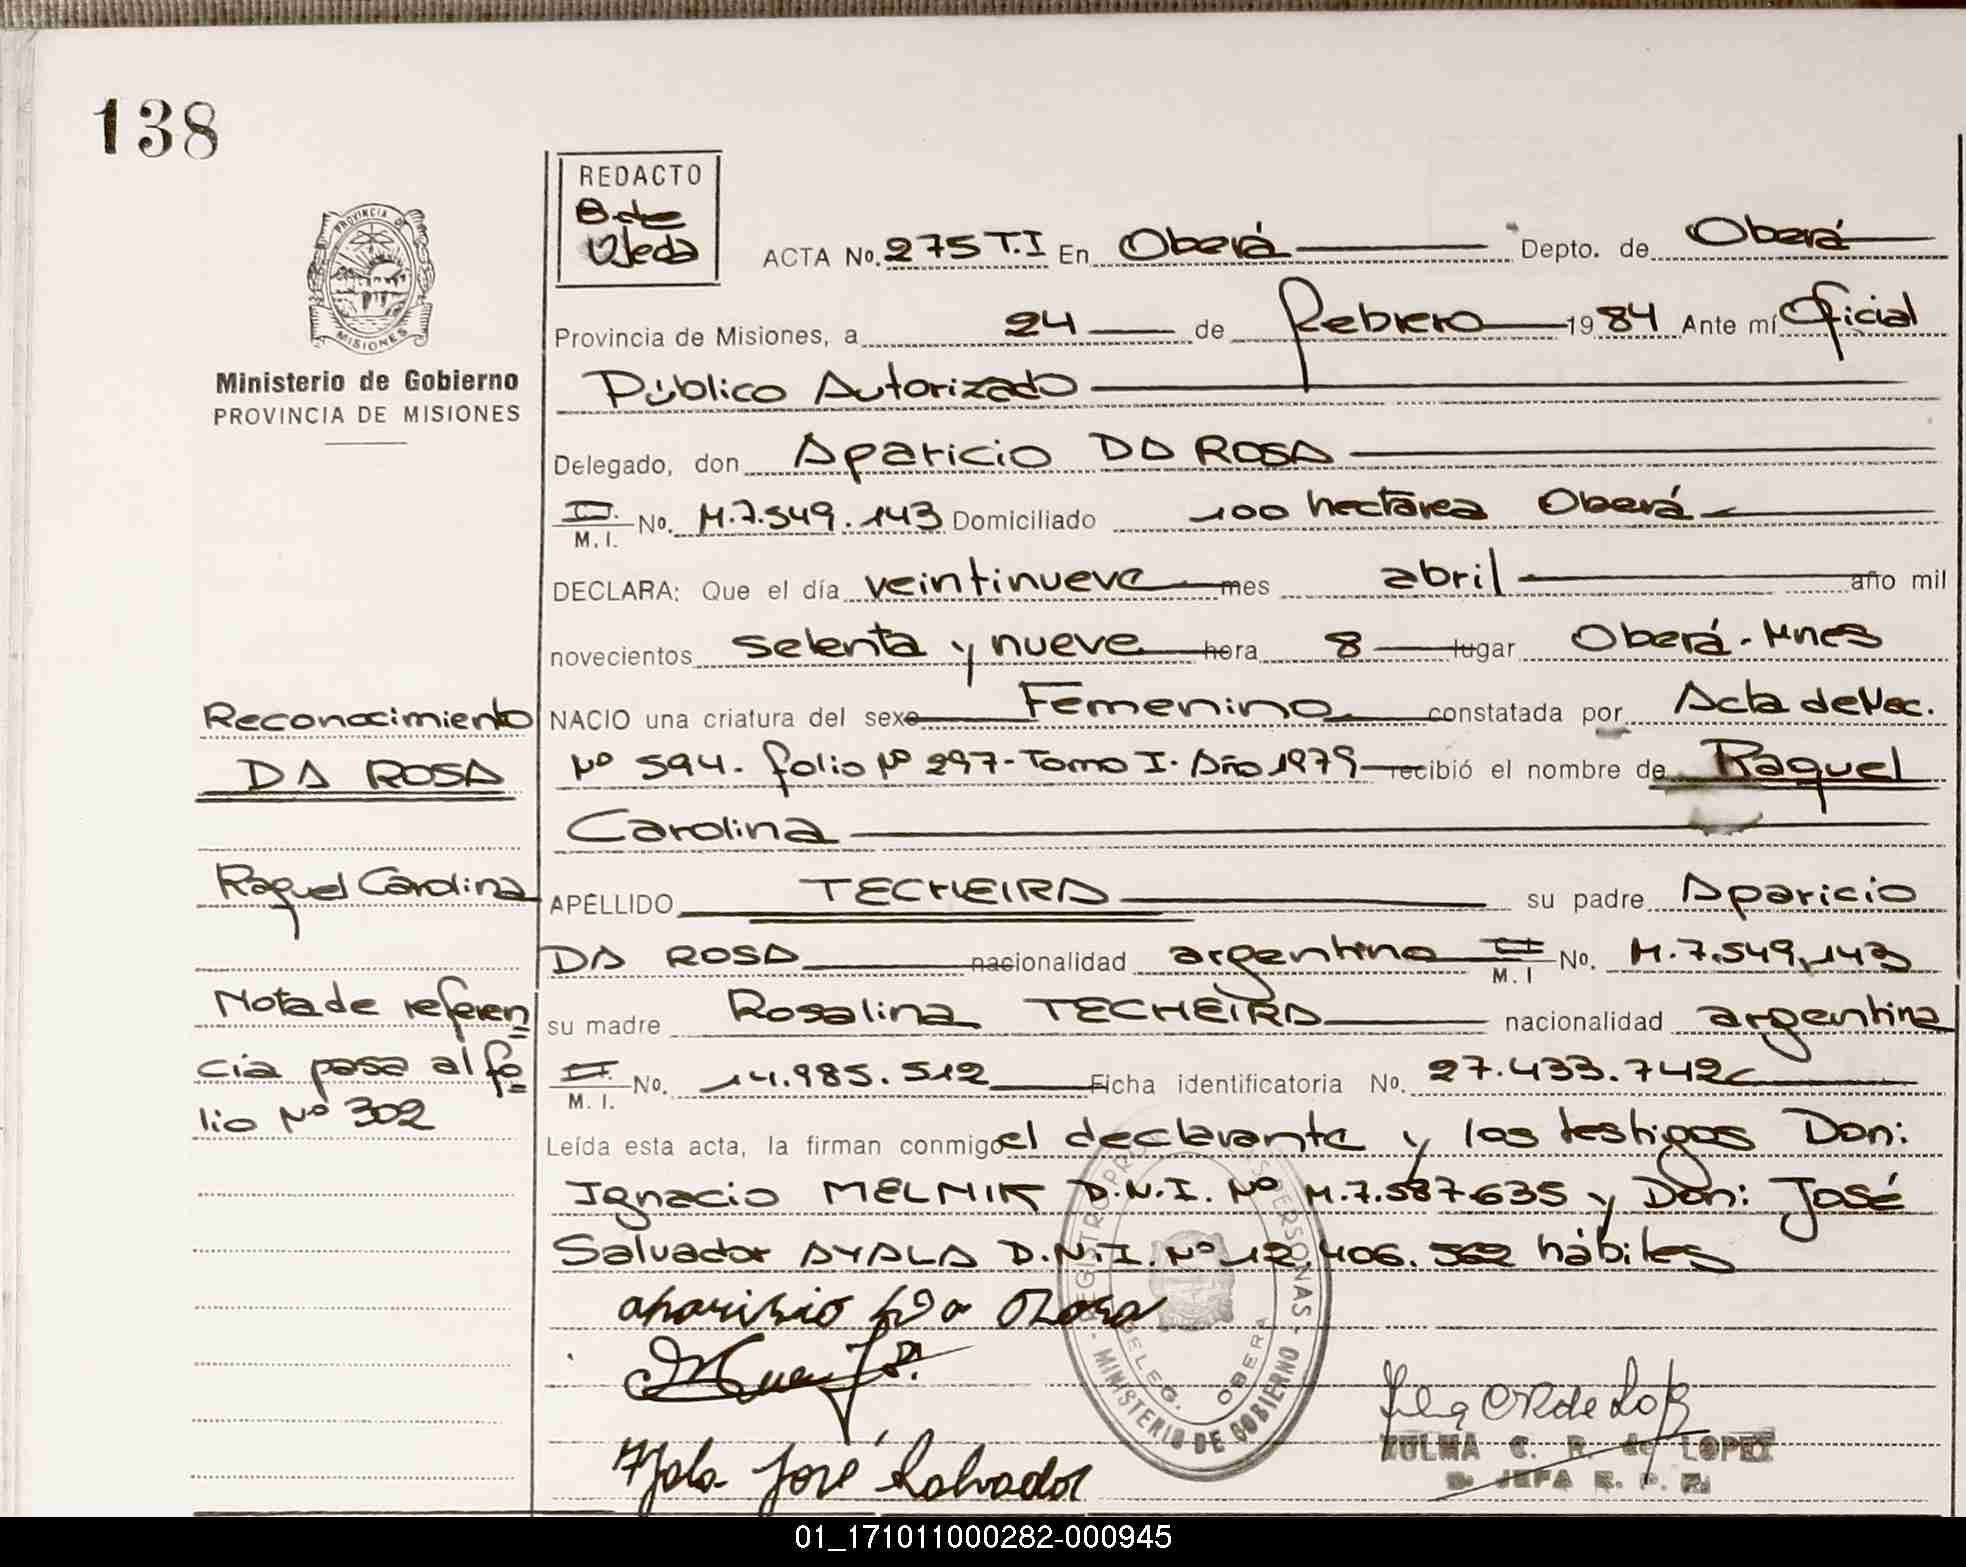 138
REDACTO
B. de
Ojeda
PROVINCIA DE
MISIONES
Ministerio de Gobierno
PROVINCIA DE MISIONES
ACTA No. 275 T.I En Oberá Depto. de Oberá
Provincia de Misiones, a 24 de Febrero 1984 Ante mí Oficial
Público Autorizado
Delegado, don Aparicio DA ROSA
M. I. No. M.7.549.143 Domiciliado 100 hectárea Oberá
DECLARA: Que el día veintinueve mes abril año mil
novecientos setenta y nueve hora 8 lugar Oberá-Mnes
NACIO una criatura del sexo Femenino constatada por Acta de Nac.
Nº 594. folio Nº 297-Tomo I. Año 1979 recibió el nombre de Raquel
Carolina
APELLIDO TECHEIRA su padre Aparicio
DA ROSA nacionalidad argentina M. I No. M.7.549.143
su madre Rosalina TECHEIRA nacionalidad argentina
M. I. No. 14.985.512 Ficha identificatoria No. 27.433.742
Leída esta acta, la firman conmigo el declarante y los testigos Don:
Ignacio MELNIK D.N.I. Nº M.7.587.635 y Don: José
Salvador AYALA D.N.I. Nº 12.406.562 hábiles
Reconocimiento
DA ROSA
Raquel Carolina
Nota de referen
cia pasa al fo
lio Nº 302
aparisio Da Rosa
Ayala José Salvador
REGISTRO PERSONAS
DELEG. OBERA
MINISTERIO DE GOBIERNO
ZULMA C. R. de LOPEZ
JEFA
01_171011000282-000945